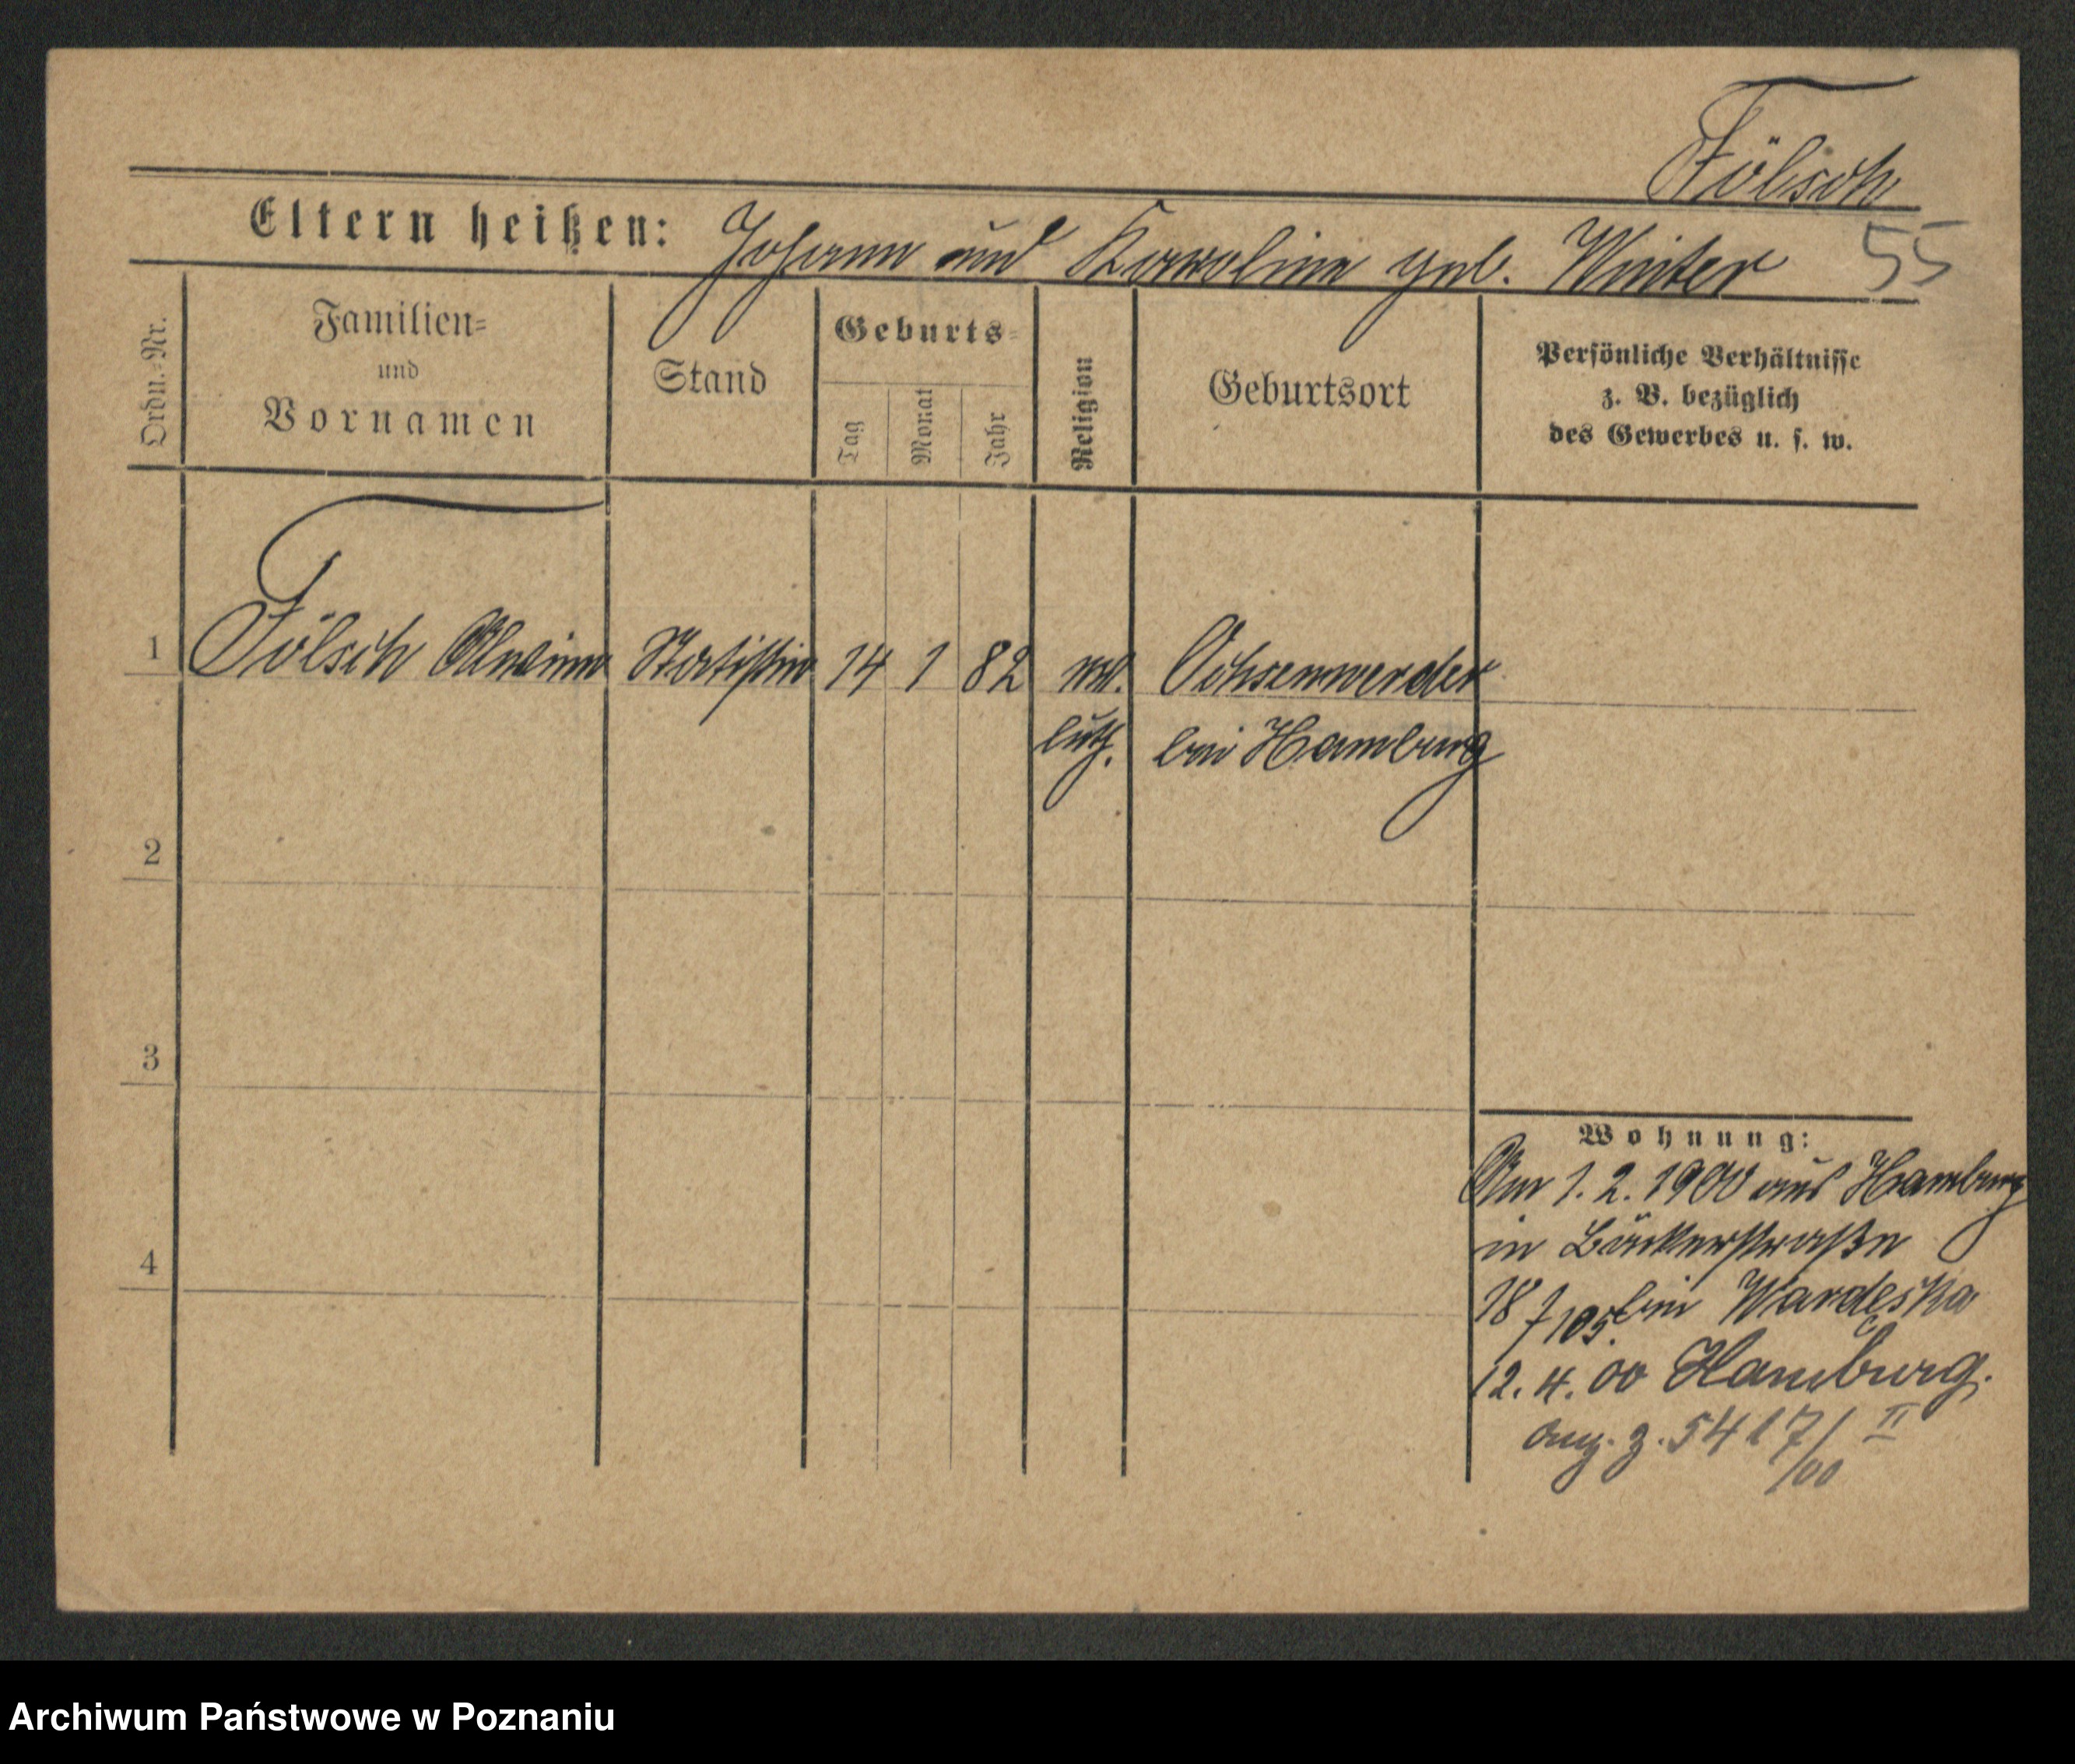 Fölsch
Eltern heißen: Johann und Karoline geb. Winter 55
Ordn.-Nr.
Familien-
und
Vornamen
Stand
Geburts-
Tag
Monat
Jahr
Religion
Geburtsort
Persönliche Verhältnisse
z. B. bezüglich
des Gewerbes u. s. w.
1 Fölsch Alwine Artistin 14 1 82 ev. Ochsenwerder
luth. bei Hamburg
2
3
4
Wohnung:
Am 1. 2. 1900 aus Hamburg
in Bäckerstraße
18 bei Wardeska
12. 4. 00 Hamburg.
ang. z. 5417/00 II
Archiwum Państwowe w Poznaniu